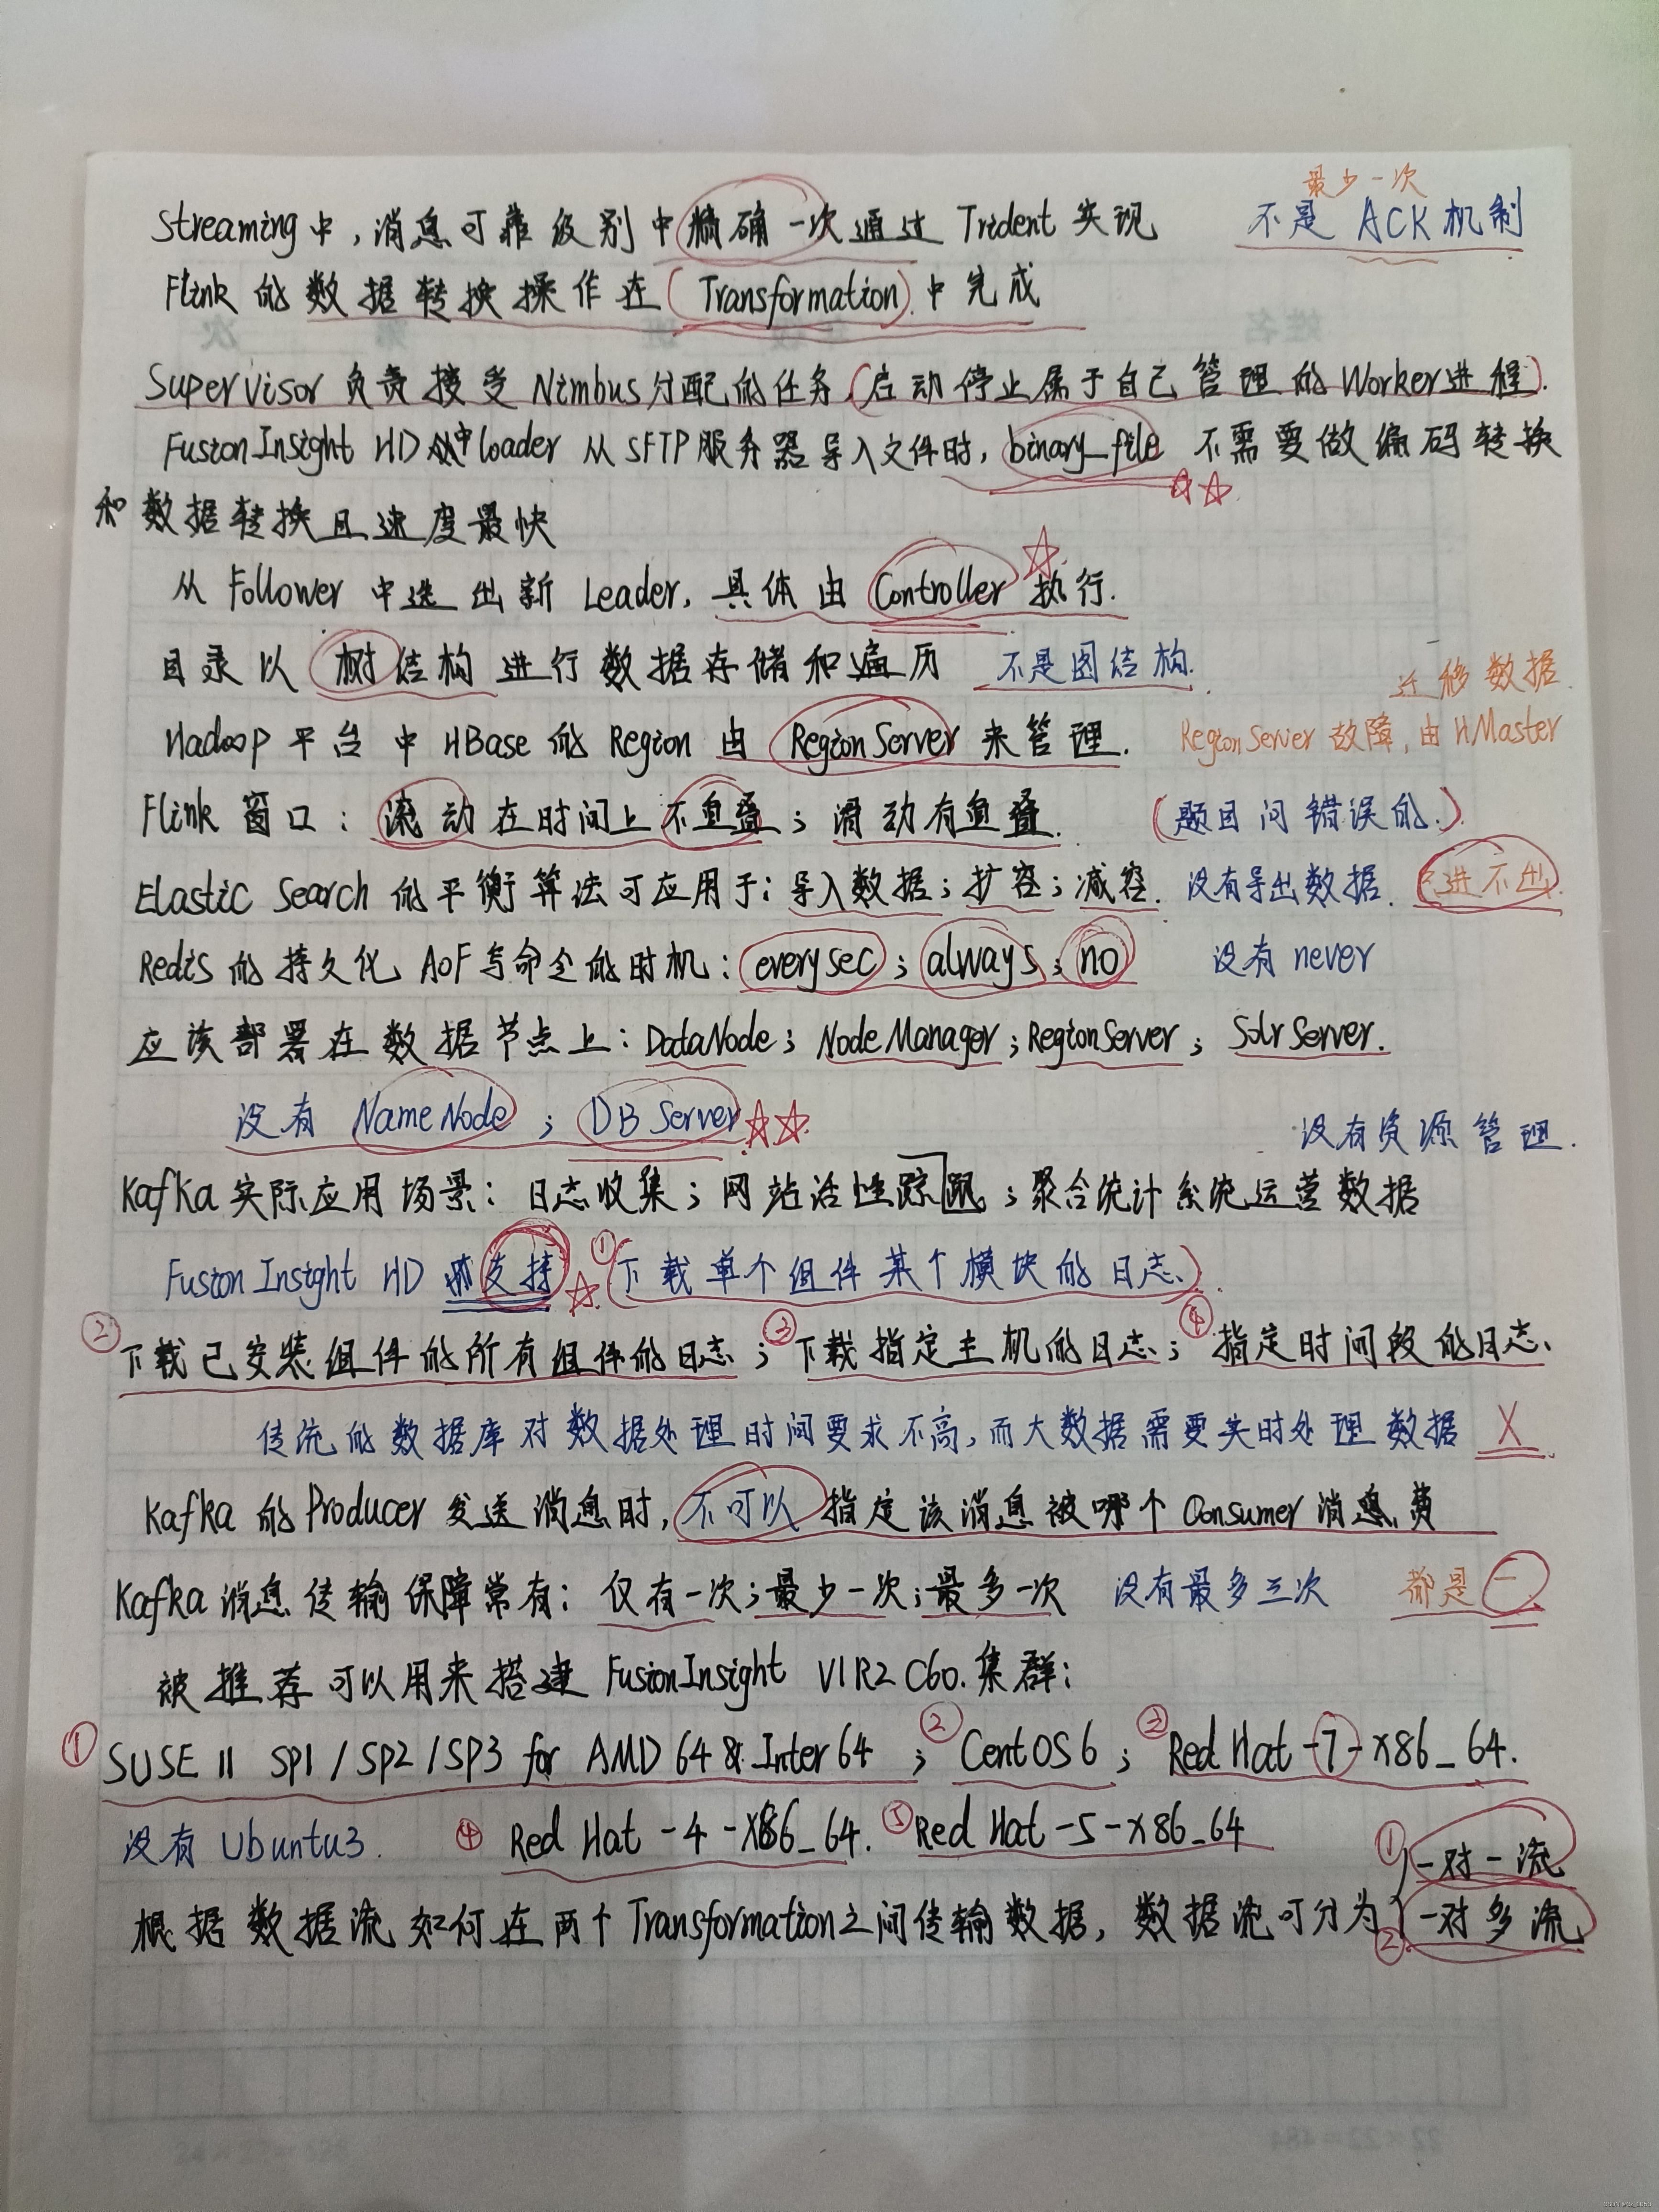 最少一次
Streaming中，消息可靠级别中精确一次通过Trident实现 不是ACK机制
Flink的数据转换操作在(Transformation)中完成
Supervisor负责接受Nimbus分配的任务(启动停止属于自己管理的Worker进程).
FusionInsight HD中loader从SFTP服务器导入文件时，binary_file不需要做编码转换
和数据转换且速度最快
从Follower中选出新Leader，具体由Controller执行.
目录以树结构进行数据存储和遍历 不是图结构.
迁移数据.
Hadoop平台中HBase的Region由RegionServer来管理. RegionServer故障，由HMaster
Flink窗口：滚动在时间上不重叠；滑动有重叠. (题目问错误的.)
Elastic Search的平衡算法可应用于：导入数据；扩容；减容. 没有导出数据. 进不出
Redis的持久化AOF写命令的时机：everysec；always；no 没有never
应该部署在数据节点上：DataNode；NodeManager；RegionServer；SolrServer.
没有NameNode；DBServer
没有资源管理.
Kafka实际应用场景：日志收集；网站活性跟踪；聚合统计系统运营数据
FusionInsight HD支持 ①(下载单个组件某个模块的日志.)
②下载已安装组件的所有组件的日志；③下载指定主机的日志；④指定时间段的日志、
传统的数据库对数据处理时间要求不高，而大数据需要实时处理数据 X
Kafka的Producer发送消息时，不可以指定该消息被哪个Consumer消息费
Kafka消息传输保障常有：仅有一次；最少一次；最多一次 没有最多三次 都是一
被推荐可以用来搭建FusionInsight V1R2C60.集群：
①SUSE 11 SP1/SP2/SP3 for AMD64&Inter64；②CentOS6；③Red Hat-7-x86_64.
没有Ubuntu3. ④Red Hat-4-x86_64. ⑤Red Hat-5-x86_64
①一对一流
根据数据流如何在两个Transformation之间传输数据，数据流可分为 ②一对多流